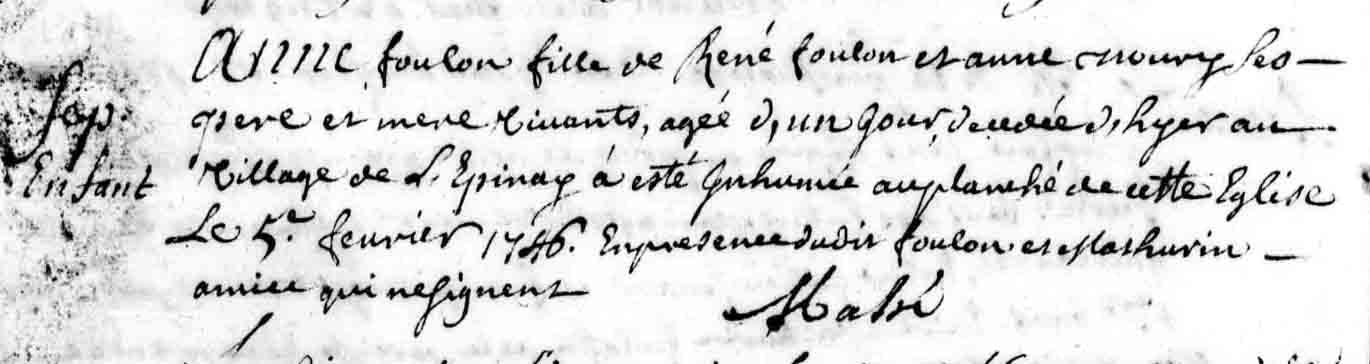 Anne foulon fille de René foulon et anne noury ses
Sep. pere et mere Vivants, agée d,un jour, decedée d,hyer au
Enfant Village de L'Epinay à esté Inhumée au planché de cette Eglise
Le 5.e fevrier 1746. En presence dudit foulon et Mathurin
amice qui ne signent
Mahé